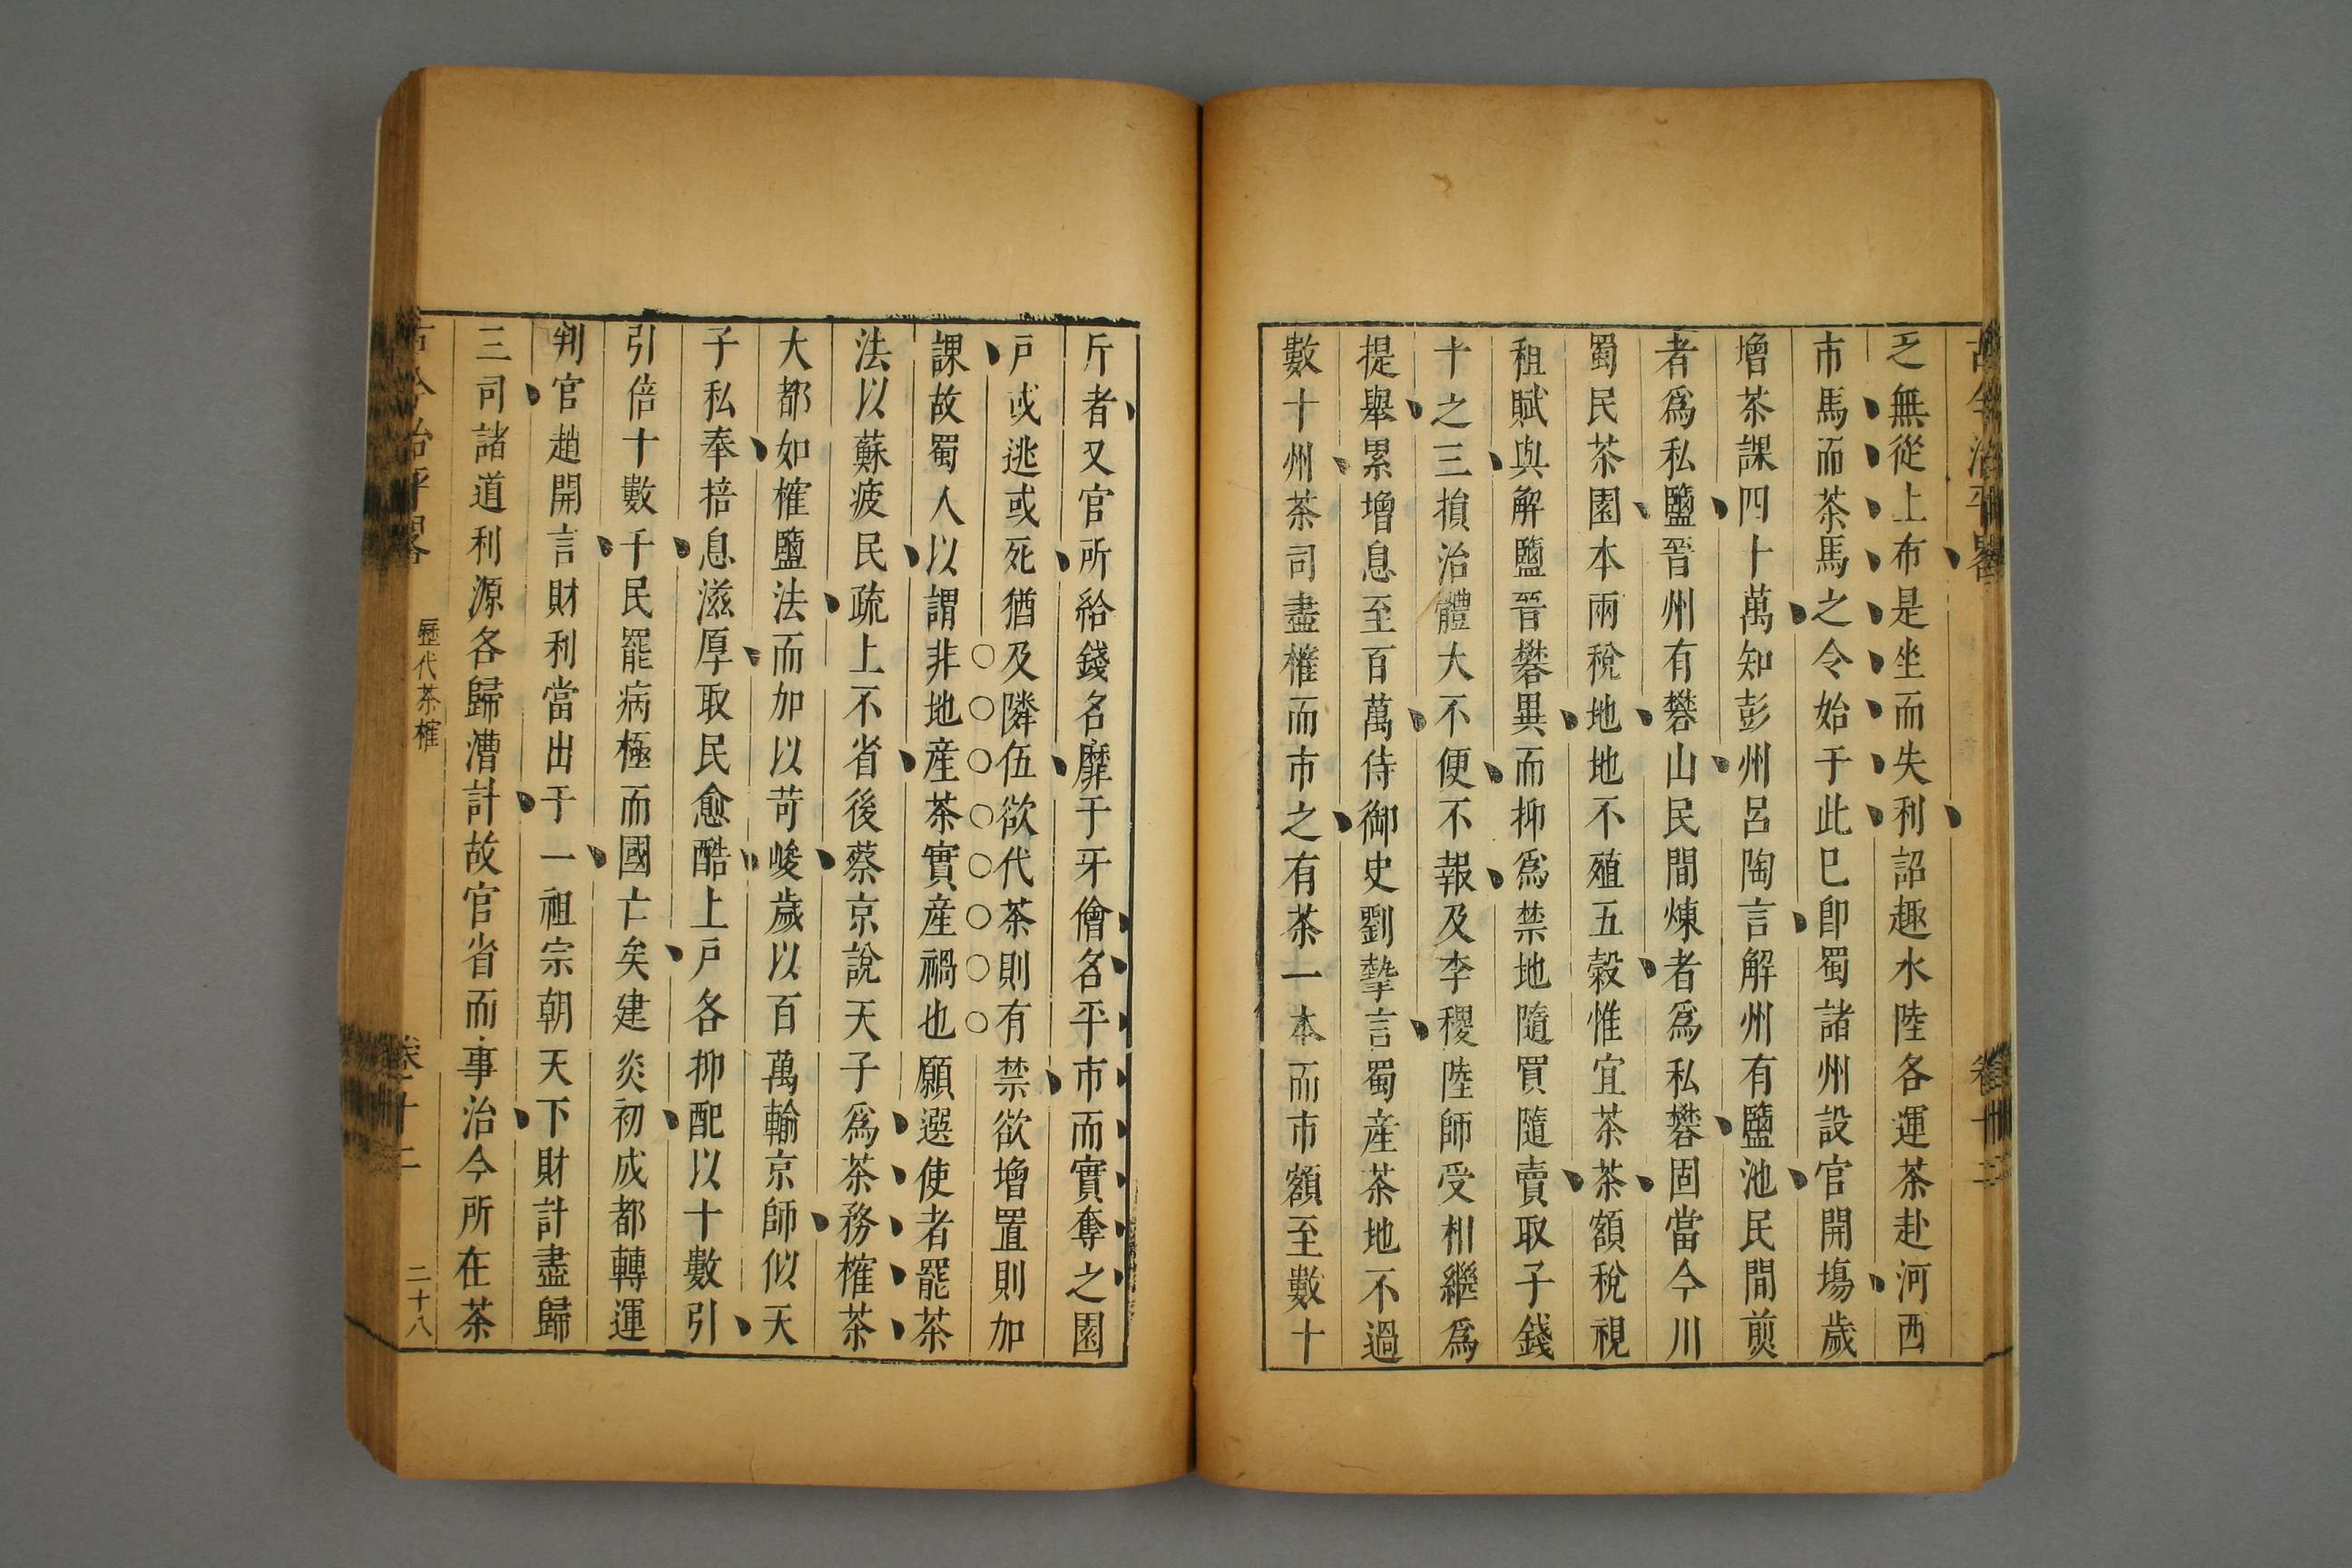 古今治平略 卷十二
乏無從上布是坐而失利詔趣水陸各運茶赴河西
市馬而茶馬之令始于此巳卽蜀諸州設官開塲歲
增茶課四十萬知彭州呂陶言解州有鹽池民間煎
者爲私鹽晉州有礬山民間煉者爲私礬固當今川
蜀民茶園本兩稅地地不殖五榖惟宜茶茶額稅視
租賦與解鹽晉礬異而抑爲禁地隨買隨賣取子錢
十之三損治體大不便不報及李稷陸師受相繼爲
提舉累增息至百萬侍御史劉摯言蜀産茶地不過
數十州茶司盡榷而市之有茶一本而市額至數十
斤者又官所給錢名靡于牙儈名平市而實奪之園
戸或逃或死猶及隣伍欲代茶則有禁欲增置則加
課故蜀人以謂非地産茶實産禍也願選使者罷茶
法以蘇疲民疏上不省後蔡京說天子爲茶務榷茶
大都如榷鹽法而加以苛峻歲以百萬輸京師似天
子私奉掊息滋厚取民愈酷上戸各抑配以十數引
引倍十數千民罷病極而國亡矣建炎初成都轉運
判官趙開言財利當出于一祖宗朝天下財計盡歸
三司諸道利源各歸漕計故官省而事治今所在茶
古今治平畧 歷代茶榷 卷十二 二十八